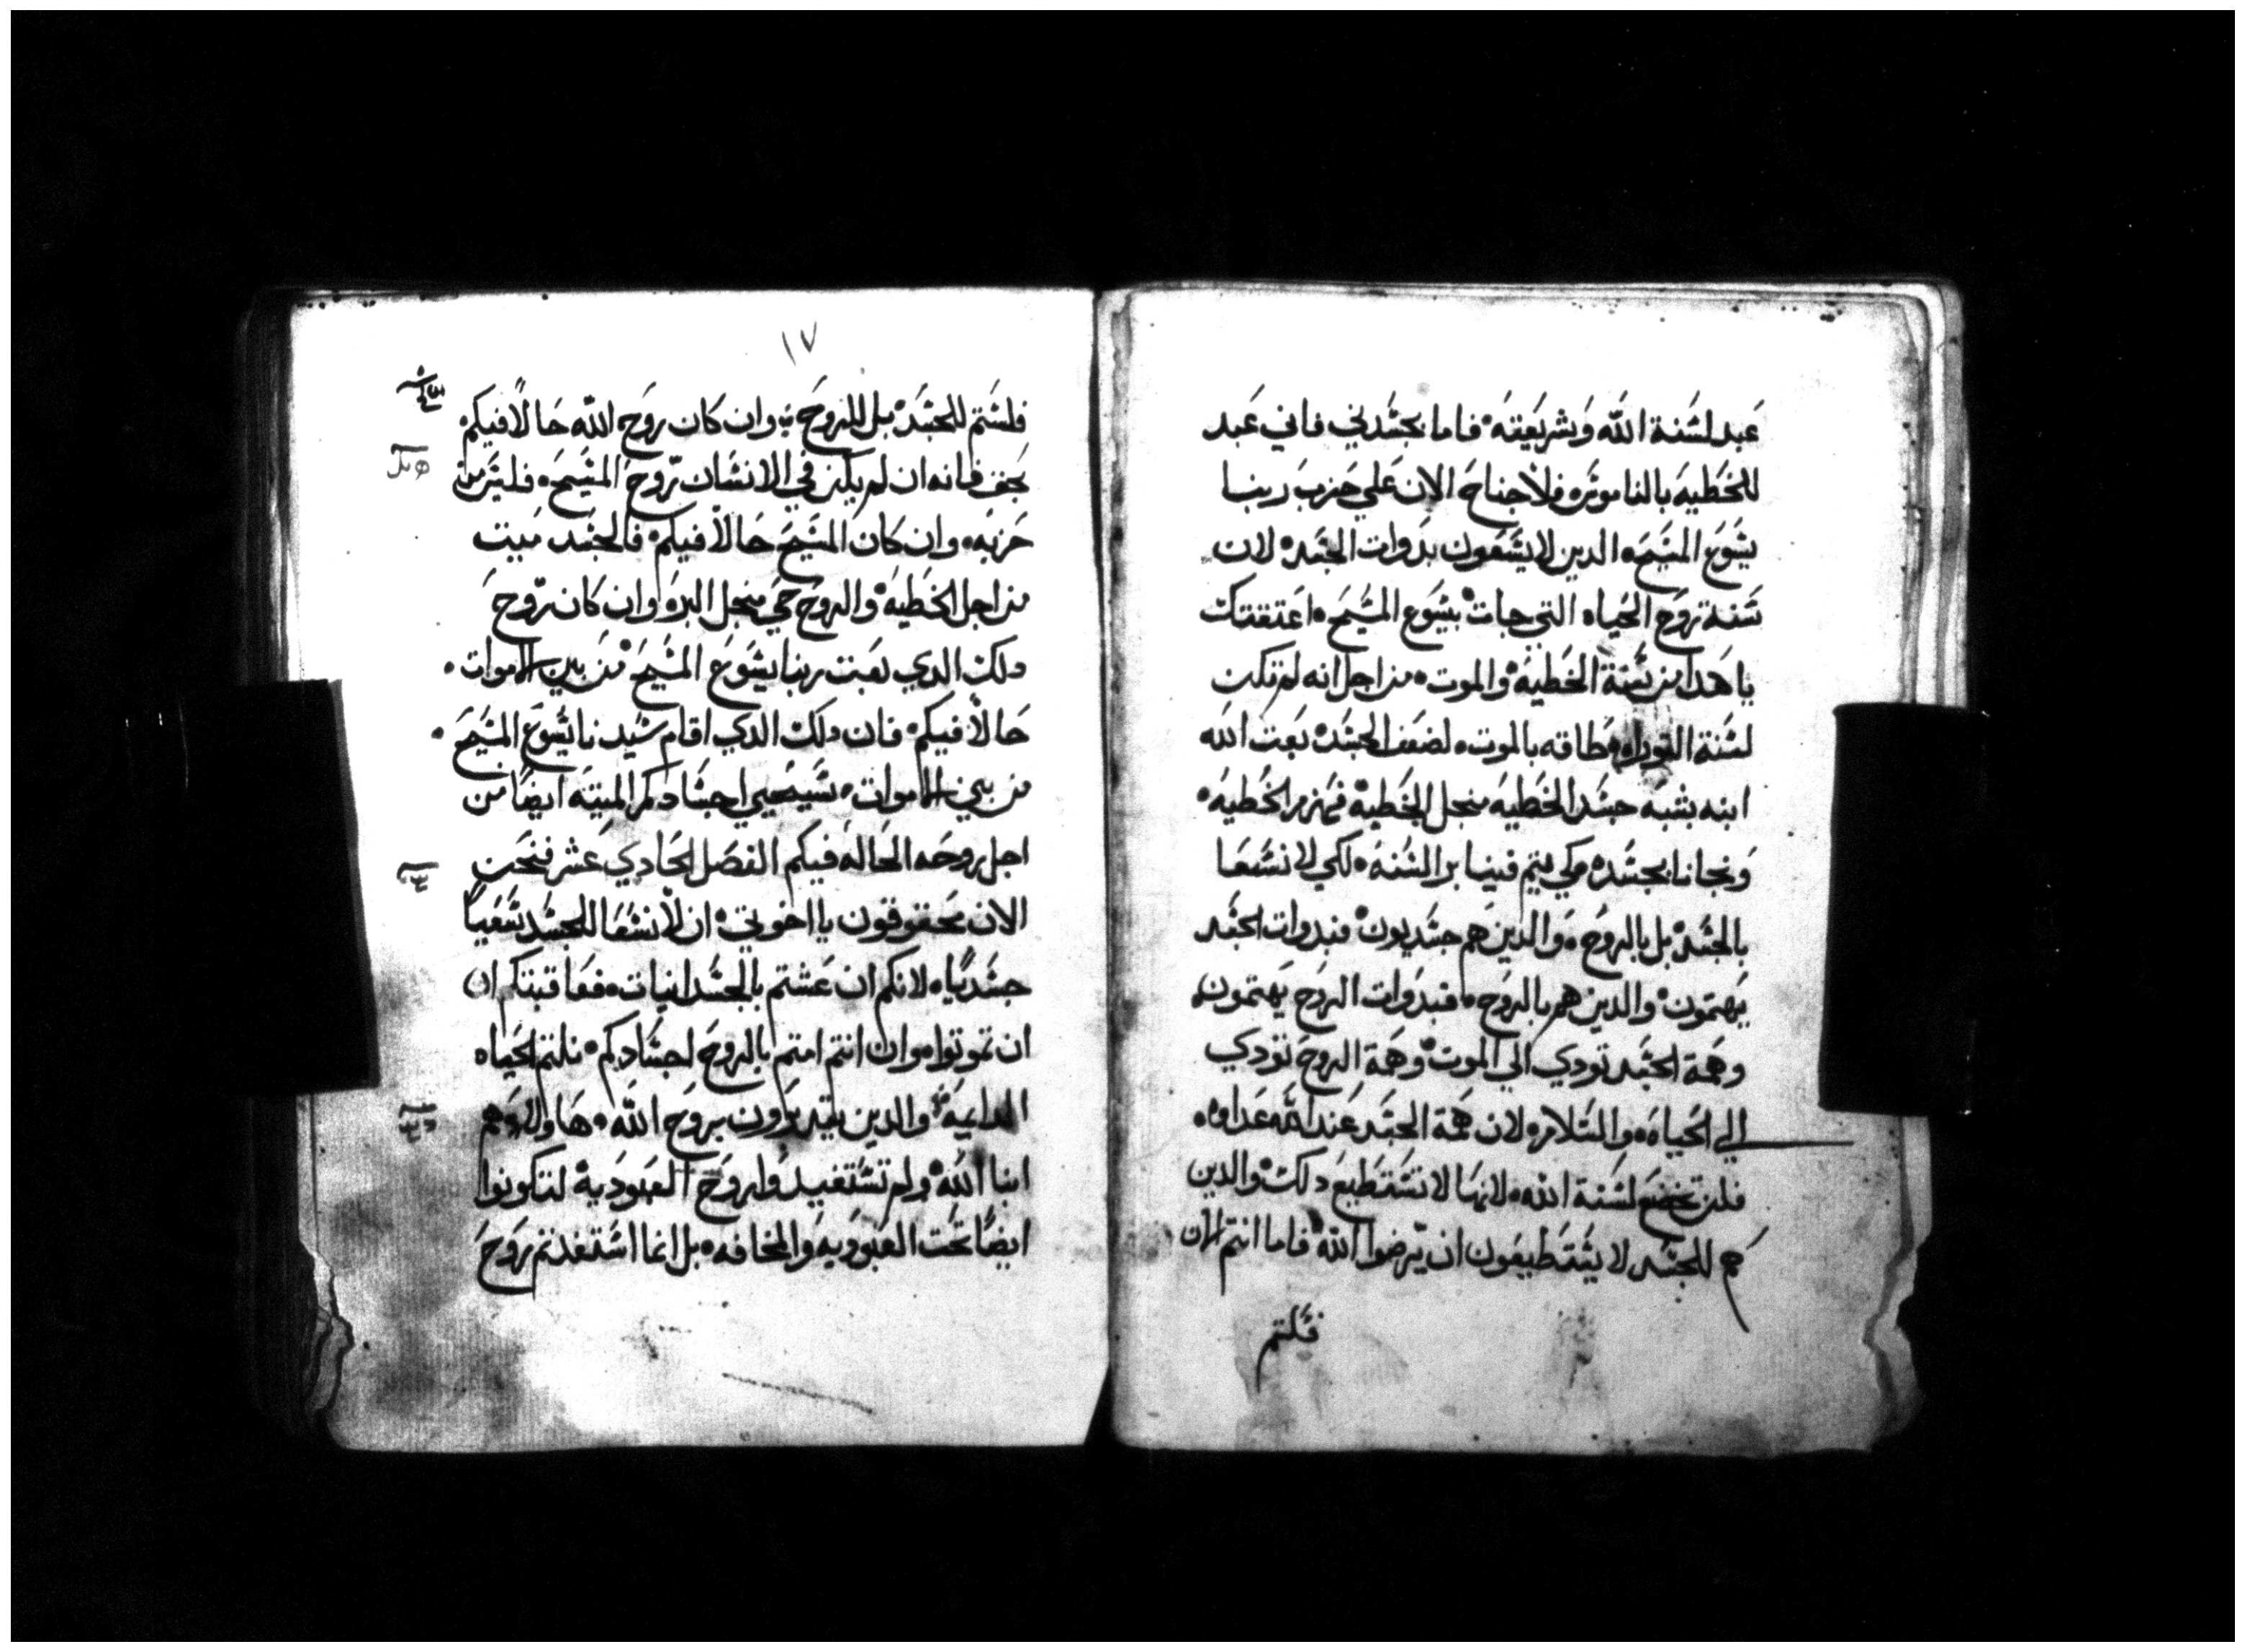 عبد لسنة الله وشريعته فاما بجسدني فاني عبد
للخطيه بالناموس فلا جناح الان علي حزب ربنا
يسوع المسيح الدين لا يسعون بدوات الجسد لان
سنة روح الحياه التي جات بيسوع المسيح اعتقتك
يا هدا من سنة الخطيه والموت من اجل انه لم تكن
لسنة التوراه طاقه بالموت لضعف الجسد بعت الله
ابنه بشبه جسد الخطيه منجل الخطية فهزم الخطيه
ونجانا بجسده كي يتم فينا بر السنه لكي لا نسعا
بالجسد بل بالروح والدين هم جسديون فبدوات الجسد
يهتمون والدين هم بالروح فبدوات الروح يهتمون
وهمة الجسد تودي الي الموت وهمة الروح تودي
الي الحياه والسلام لان همة الجسد عند الله عداوه
فلن تخضع لسنة الله لانها لا تستطيع دلك والدين
هم للجسد لا يستطيعون ان يرضوا الله فاما انتم الان
فلستم
١٧
فلستم للجسد بل للروح وان كان روح الله حالا فيكم
بحق فانه ان لم يكن في الانسان روح المسيح فليس من
حزبه وان كان المسيح حالا فيكم فالجسد ميت
من اجل الخطيه والروح حي منجل البر وان كان روح
دلك الدي بعت ربنا يسوع المسيح من بين الاموات
حالا فيكم فان دلك الدي اقام سيدنا يسوع المسيح
من بين الاموات سيحيي اجسادكم الميته ايضا من
اجل روحه الحاله فيكم الفصل الحادي عشر فنحن
الان محقوقون يا اخوتي ان لا نسعا للجسد سعيا
جسديا لانكم ان عشتم بالجسدانيات فعاقبتكم ان
ان تموتوا وان انتم امتم بالروح اجسادكم نلتم الحياه
الدايمة والدين يتدبرون بروح الله هاولاهم
ابنا الله ولم تستفيدوا روح العبودية لتكونوا
ايضا تحت العبوديه والمخافه بل انما استفدتم روح